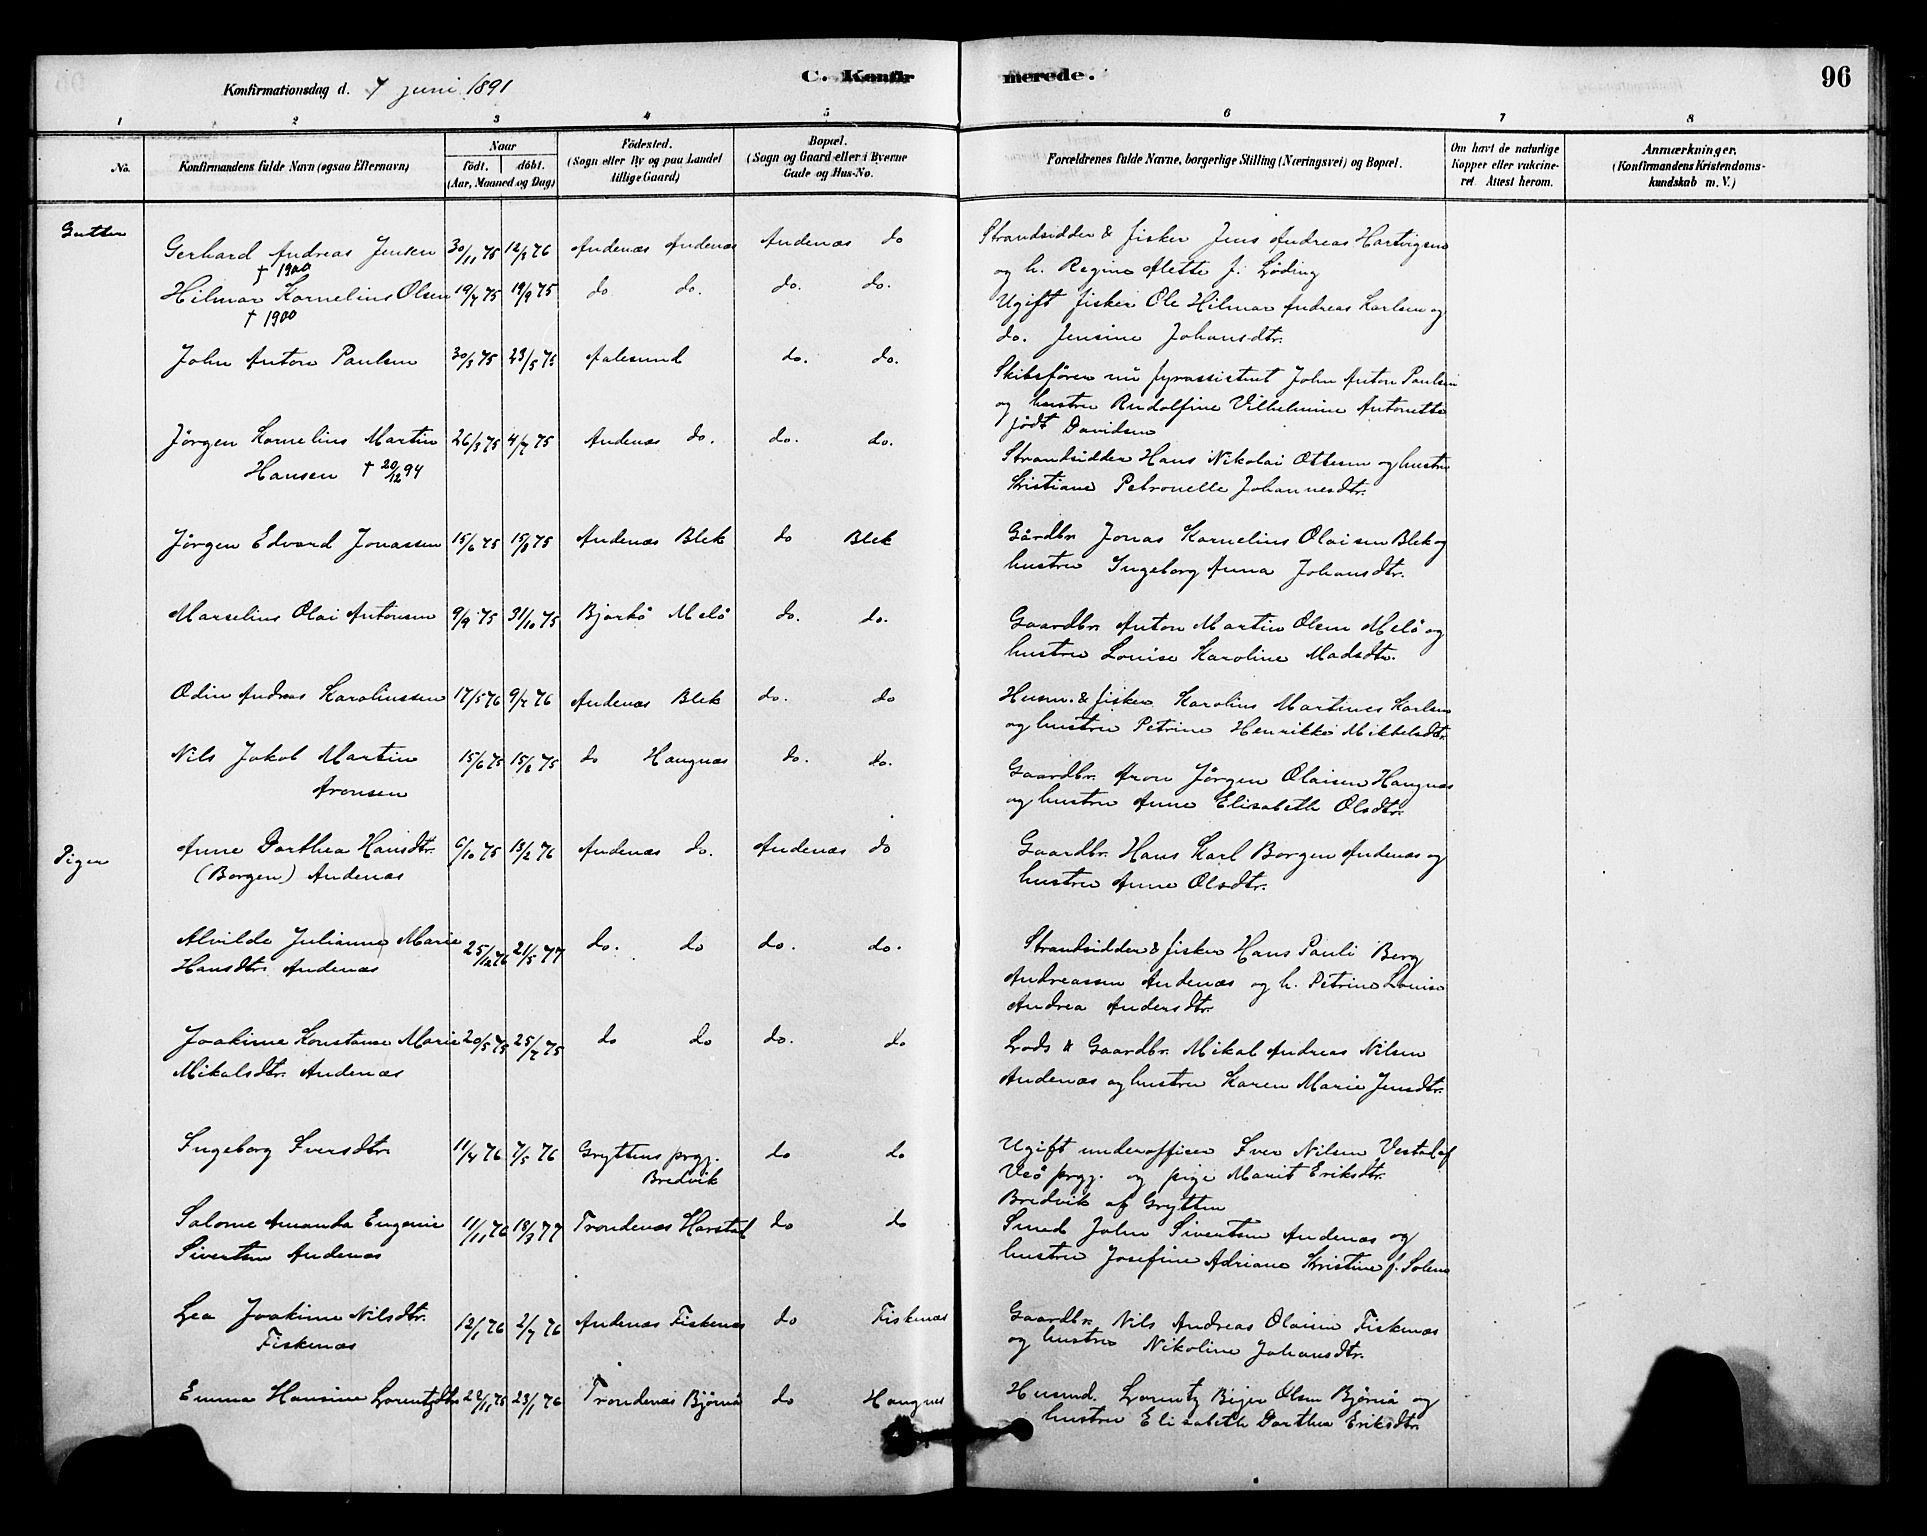 C. Konfirmerede.
96
Konfirmationsdag d. 7 juni 1891
1 2 3 4 5 6 7 8
No.
Konfirmandens fulde Navn (ogsaa Efternavn)
Naar
födt. döbt.
(Aar, Maaned og Dag)
Födested.
(Sogn eller By og paa Landet
tillige Gaard)
Bopæl.
(Sogn og Gaard eller i Byerne
Gade og Hus-No.
Forældrenes fulde Navne, borgerlige Stilling (Næringsvei) og Bopæl.
Om havt de naturlige
Kopper eller vakcine-
ret. Attest herom.
Anmærkninger.
(Konfirmandens Kristendoms-
kundskab m. V.)
Gutter
Gerhard Andreas Jensen 30/11 75 12/3 76 Andenæs Andenæs Andenæs do Strandsidder & fisker Jens Andreas Hartvigsen
† 1900 og h. Regine Mette f. Löding
Hilmar Kornelius Olsen 19/7 75 19/9 75 do do. do. do. Ugift fisker Ole Hilmar Andreas Karlsen og
† 1900 do. Jensine Johansdtr.
John Anton Paulsen 30/3 75 23/5 75 Aalesund do. do. Skibsförer nu fyrassistent John Anton Paulsen
og hustru Rudolfine Vilhelmine Antonette
födt Davidsen
Jörgen Kornelius Martin 26/3 75 4/7 75 Andenæs do. do. do. Strandsidder Hans Nikolai Ottesen og hustru
Hansen † 20/12 94 Kristiane Petronelle Johannesdtr.
Jörgen Edvard Jonassen 15/6 75 15/8 75 Andenæs Blek do Blek Gårdbr. Jonas Kornelius Olaisen Blek og
hustru Ingeborg Anna Johansdtr.
Marselius Olai Antonsen 9/9 75 31/10 75 Bjarkö Melö do. do. Gaardbr. Anton Martin Olsen Melö og
hustru Louise Karoline Madsdtr.
Odin Andreas Karoliussen 17/5 76 9/7 76 Andenæs Blek do. do Husm. & fisker Karolius Martines Karlsen
og hustru Petrine Henrikke Mikkelsdtr.
Nils Jakob Martin 15/6 75 15/8 75 do Haugnæs do. do. Gaardbr. Aron Jörgen Olaisen Haugnæs
Aronsen og hustru Anne Elisabeth Olsdtr.
Piger
Anne Dorthea Hansdtr. 6/10 75 13/2 76 Andenæs do. Andenæs do Gaardbr. Hans Karl Borgen Andenæs og
(Borgen) Andenæs hustru Anne Olsdtr.
Alvilde Julianne Marie 25/12 76 21/5 77 do. do do. do. Strandsidder & fisker Hans Pauli Berg
Hansdtr. Andenæs Andreassen Andenæs og h. Petrine Louise
Andrea Andersdtr.
Joakime Konstanse Marie 20/5 75 25/7 75 do do do. do Lods & Gaardbr. Mikal Andreas Nilsen
Mikalsdtr. Andenæs Andenæs og hustru Karen Marie Jensdtr.
Ingeborg Iversdtr. 11/4 76 7/5 76 Gryttens prgj. do do Ugift underofficer Iver Nilsen Vestad af
Bredvik Veö prgj. og pige Marit Eriksdtr.
Bredvik af Grytten
Salome Amanda Eugenie 11/11 76 18/3 77 Trondenæs Harstad do do Smed John Sivertsen Andenæs og
Sivertsen Andenæs hustru Josefine Adriane Kristine f. Solem
Lea Joakime Nilsdtr. 12/1 76 2/7 76 Andenæs Fiskenæs do Fiskenæs Gaardbr. Nils Andreas Olaisen Fiskenæs
Fiskenæs og hustru Nikoline Johansdtr.
Emma Hansine Lorentzdtr. 22/11 75 23/1 76 Trondenæs Björnå do Haugnes Husmd. Lorentz Bejer Olsen Björnå og
hustru Elisabeth Dorthea Eriksdtr.